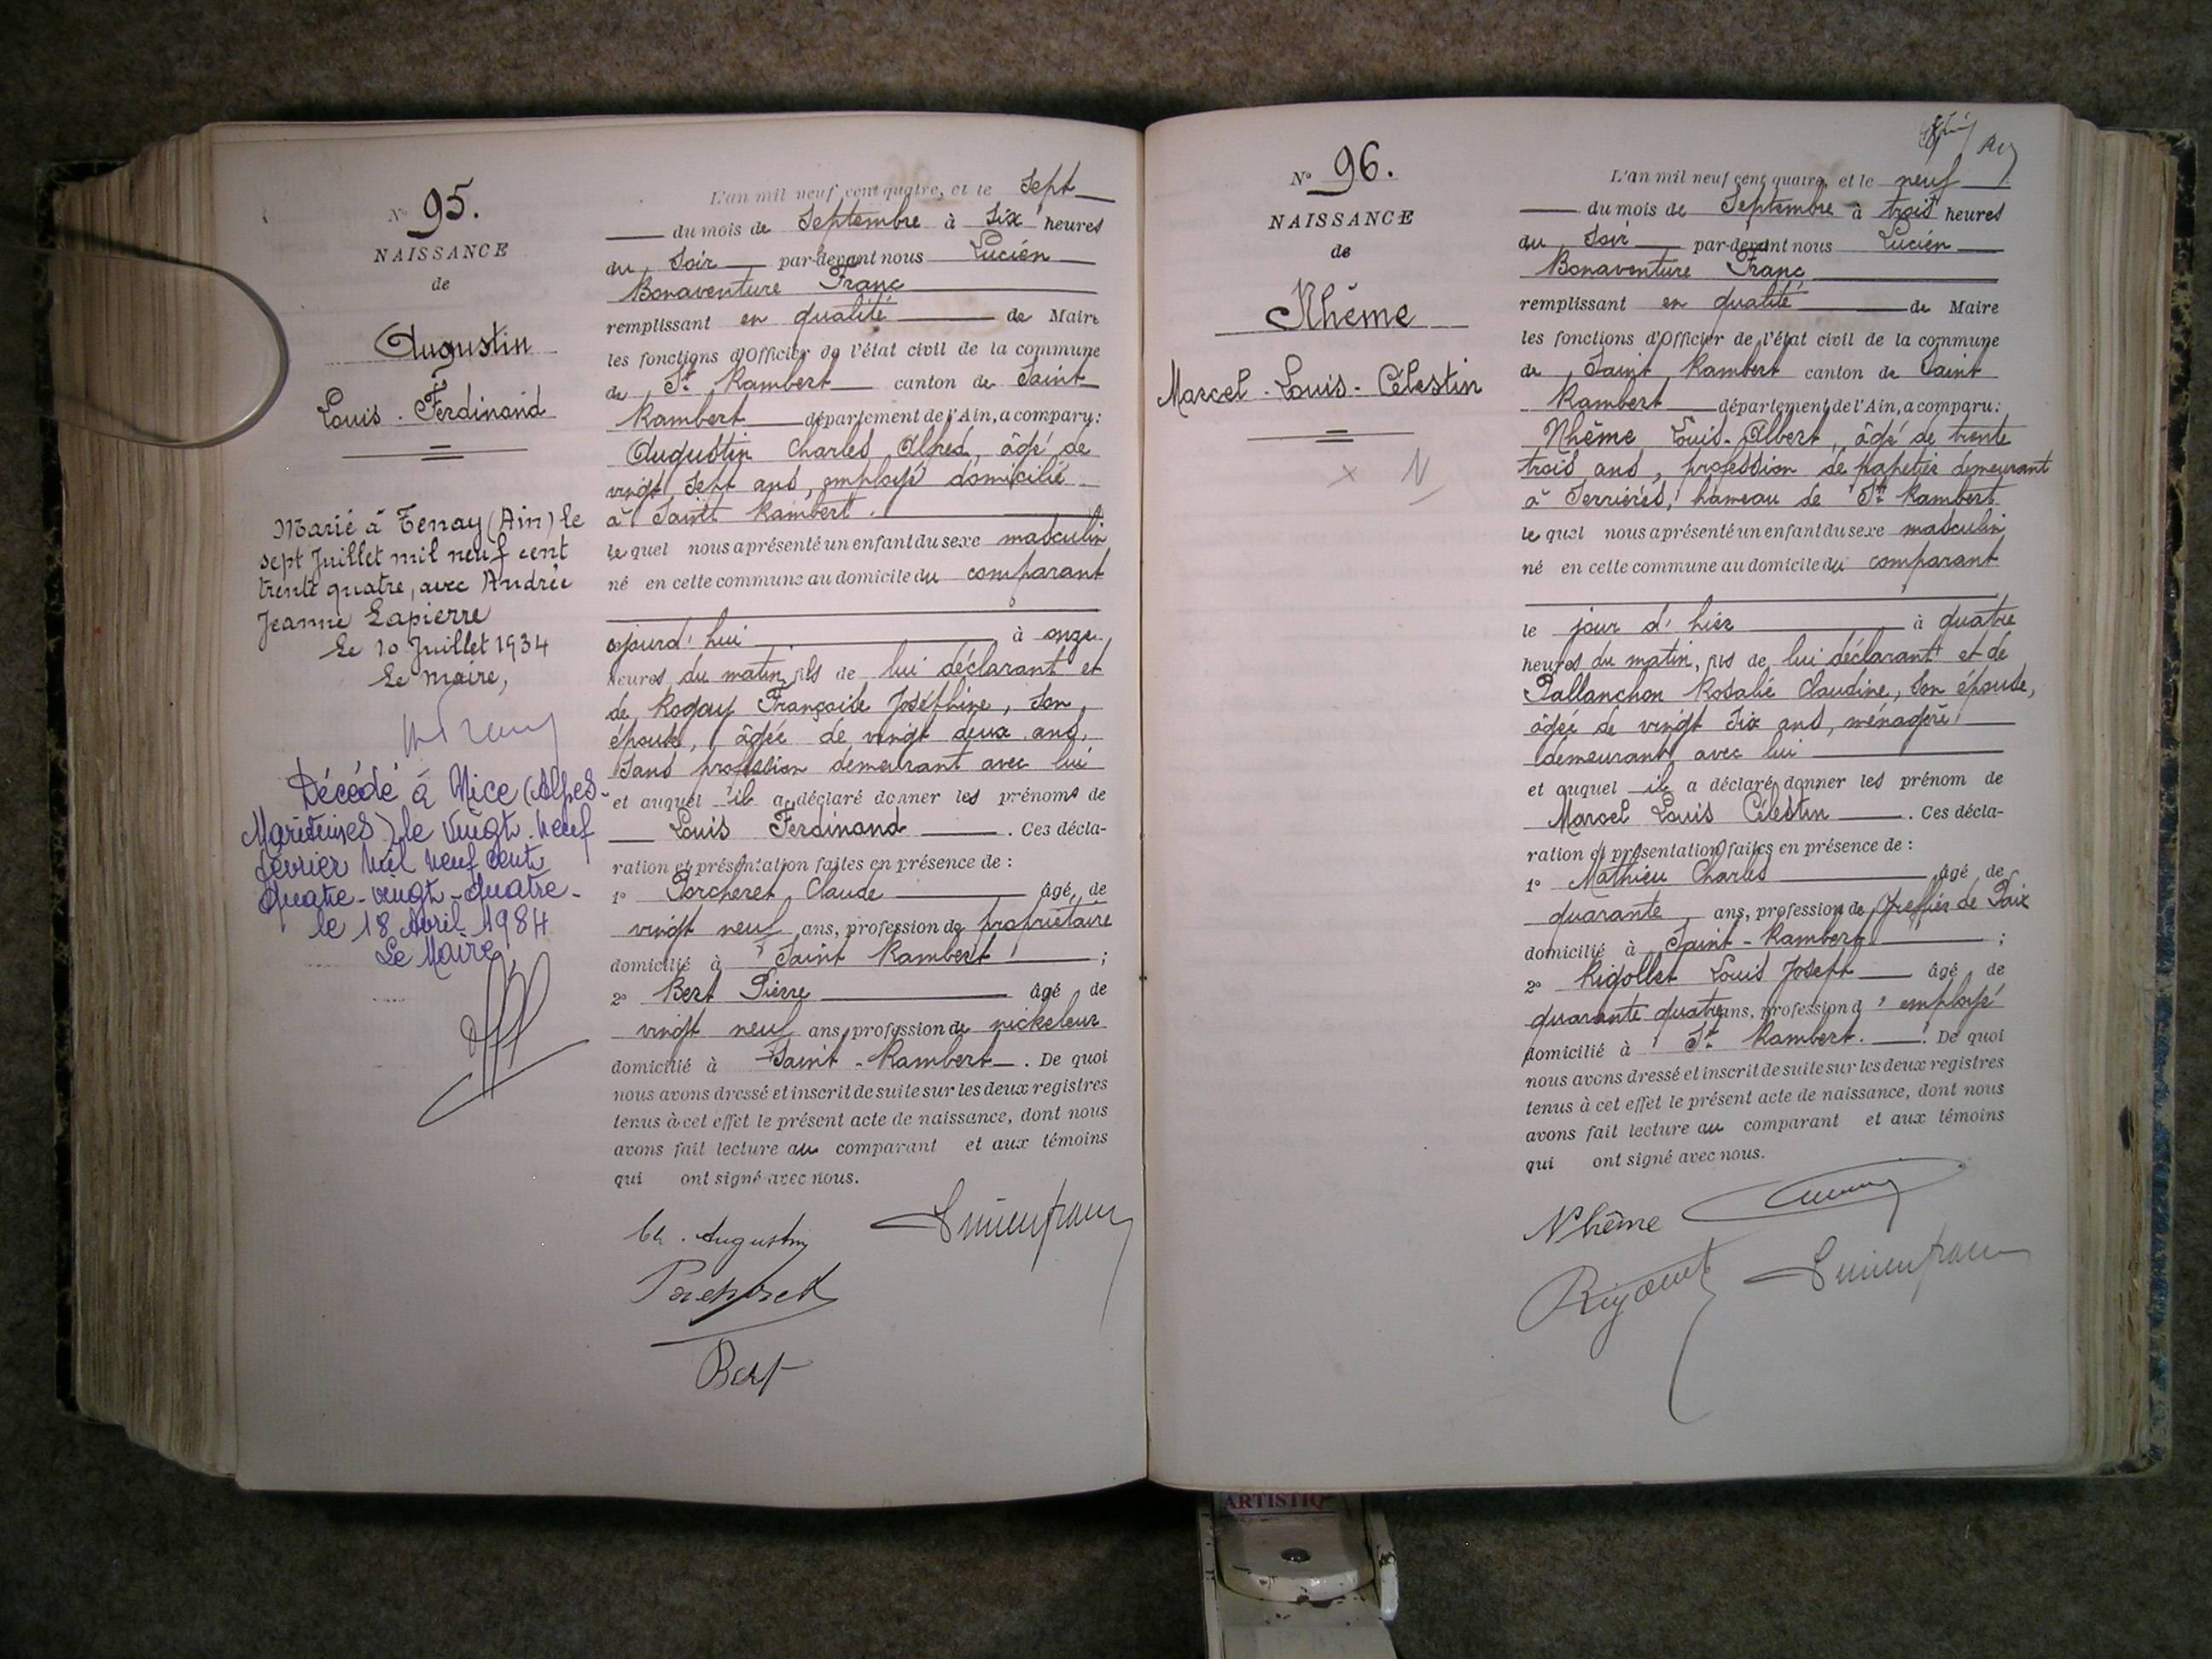 Nº 95.
NAISSANCE
de
Augustin
Louis - Ferdinand
Marié à Tenay (Ain) le
sept Juillet mil neuf cent
trente quatre, avec Andrée
Jeanne Lapierre
Le 10 Juillet 1934
Le Maire,
Décédé à Nice (Alpes-
Maritimes) le vingt-neuf
février mil neuf cent
quatre-vingt-quatre-
le 18 Avril 1984
Le Maire,
L'an mil neuf cent quatre, et le Sept
du mois de Septembre à Six heures
du Soir par-devant nous Lucien
Bonaventure Franc
remplissant en qualité de Maire
les fonctions d'Officier de l'état civil de la commune
de St Rambert canton de Saint
Rambert département de l'Ain, a comparu:
Augustin Charles Alfred, âgé de
vingt sept ans, employé domicilié
à Saint Rambert.
le quel nous a présenté un enfant du sexe masculin
né en cette commune au domicile du comparant
ojourd'hui à onze
heures du matin, fils de lui déclarant et
de Rogay Françoise Joséphine, son
épouse, âgée de vingt deux ans,
sans profession demeurant avec lui
et auquel il a déclaré donner les prénoms de
Louis Ferdinand. Ces décla-
ration et présentation faites en présence de :
1º Porcheret Claude âgé de
vingt neuf ans, profession de propriétaire
domicilié à Saint Rambert ;
2º Bert Pierre âgé de
vingt neuf ans, profession de nickeleur
domicilié à Saint-Rambert. De quoi
nous avons dressé et inscrit de suite sur les deux registres
tenus à cet effet le présent acte de naissance, dont nous
avons fait lecture au comparant et aux témoins
qui ont signé avec nous.
Ch. Augustin
Porcheret
Bert
Nº 96.
NAISSANCE
de
Nhême
Marcel - Louis - Célestin
x N
L'an mil neuf cent quatre, et le neuf
du mois de Septembre à trois heures
du Soir par-devant nous Lucien
Bonaventure Franc
remplissant en qualité de Maire
les fonctions d'Officier de l'état civil de la commune
de Saint Rambert canton de Saint
Rambert département de l'Ain, a comparu:
Nhême Louis-Albert, âgé de trente
trois ans, profession de papetier demeurant
à Serrières, hameau de St Rambert
le quel nous a présenté un enfant du sexe masculin
né en cette commune au domicile du comparant
le jour d'hier à quatre
heures du matin, fils de lui déclarant et de
Pallanchon Rosalie Claudine, son épouse,
âgée de vingt six ans, ménagère
demeurant avec lui
et auquel il a déclaré donner les prénom de
Marcel Louis Célestin. Ces décla-
ration et présentation faites en présence de :
1º Mathieu Charles âgé de
quarante ans, profession de greffier de Paix
domicilié à Saint-Rambert ;
2º Rigollet Louis Joseph âgé de
quarante quatre ans, profession d'employé
domicilié à St Rambert. De quoi
nous avons dressé et inscrit de suite sur les deux registres
tenus à cet effet le présent acte de naissance, dont nous
avons fait lecture au comparant et aux témoins
qui ont signé avec nous.
Nhême
ARTISTIQ